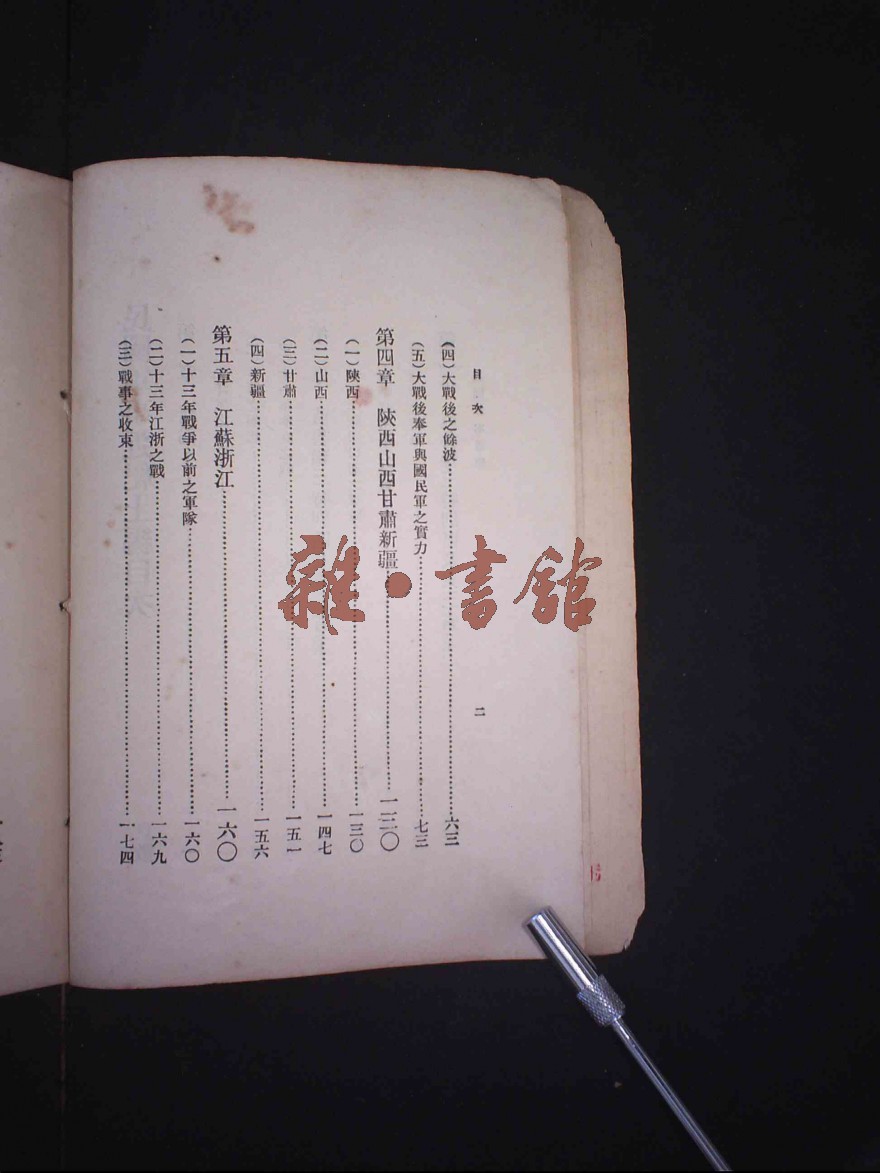 目次 二
(四)大戰後之餘波……六三
(五)大戰後奉軍與國民軍之實力……七三
第四章 陝西山西甘肅新疆……一三〇
(一)陝西……一三〇
(二)山西……一四七
(三)甘肅……一五一
(四)新疆……一五六
第五章 江蘇浙江……一六〇
(一)十三年戰爭以前之軍隊……一六〇
(二)十三年江浙之戰……一六九
(三)戰事之收束……一七四
雜·書館